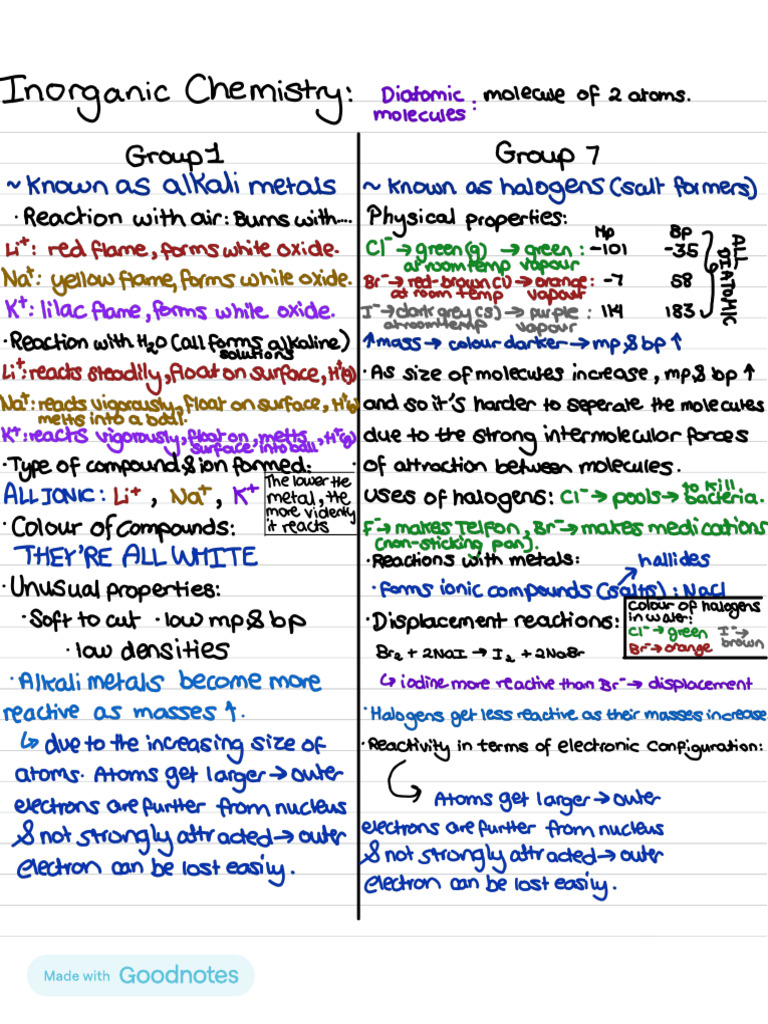 Inorganic Chemistry:
Diatomic molecules: molecule of 2 atoms.
Group 1
~ Known as alkali metals
· Reaction with air: Burns with....
Li⁺: red flame, forms white oxide.
Na⁺: yellow flame, forms while oxide.
K⁺: lilac flame, forms while oxide.
· Reaction with H₂O (all forms alkaline)
solutions
Li⁺: reacts steadily, float on surface, H⁺(g)
Na⁺: reacts vigorously, float on surface, H⁺(g)
melts into a ball.
K⁺: reacts vigorously, float on, melts, H⁺(g)
surface into ball
· Type of compound & ion formed:
ALL IONIC: Li⁺, Na⁺, K⁺
The lower the
metal, the
more violently
it reacts
· Colour of compounds:
THEY'RE ALL WHITE
· Unusual properties:
· Soft to cut · low mp & bp
· low densities
· Alkali metals become more
reactive as masses ↑.
↳ due to the increasing size of
atoms. Atoms get larger → outer
electrons are further from nucleus
& not strongly attracted → outer
electron can be lost easily.
Group 7
~ Known as halogens (salt formers)
Physical properties:
Mp Bp
Cl⁻ → green (g) → green : -101 -35
at room temp vapour
Br⁻ → red-brown (l) → orange : -7 58
at room temp vapour
I⁻ → dark grey (s) → purple : 114 183
at room temp vapour
ALL DIATOMIC
↑ mass → colour darker → mp & bp ↑
· As size of molecules increase, mp & bp ↑
and so it's harder to seperate the molecules
due to the strong intermolecular forces
of attraction between molecules.
uses of halogens: Cl⁻ → pools → to kill bacteria.
F⁻ → makes Telfon, Br⁻ → makes medications
(non-sticking pan).
· Reactions with metals: hallides
· forms ionic compounds (salts) : NaCl
· Displacement reactions:
Colour of halogens
in water:
Cl⁻ → green I⁻ →
Br⁻ → orange brown
Br₂ + 2NaI → I₂ + 2NaBr
↳ iodine more reactive than Br⁻ → displacement
· Halogens get less reactive as their masses increase
· Reactivity in terms of electronic configuration:
Atoms get larger → outer
electrons are further from nucleus
& not strongly attracted → outer
electron can be lost easily.
Made with Goodnotes